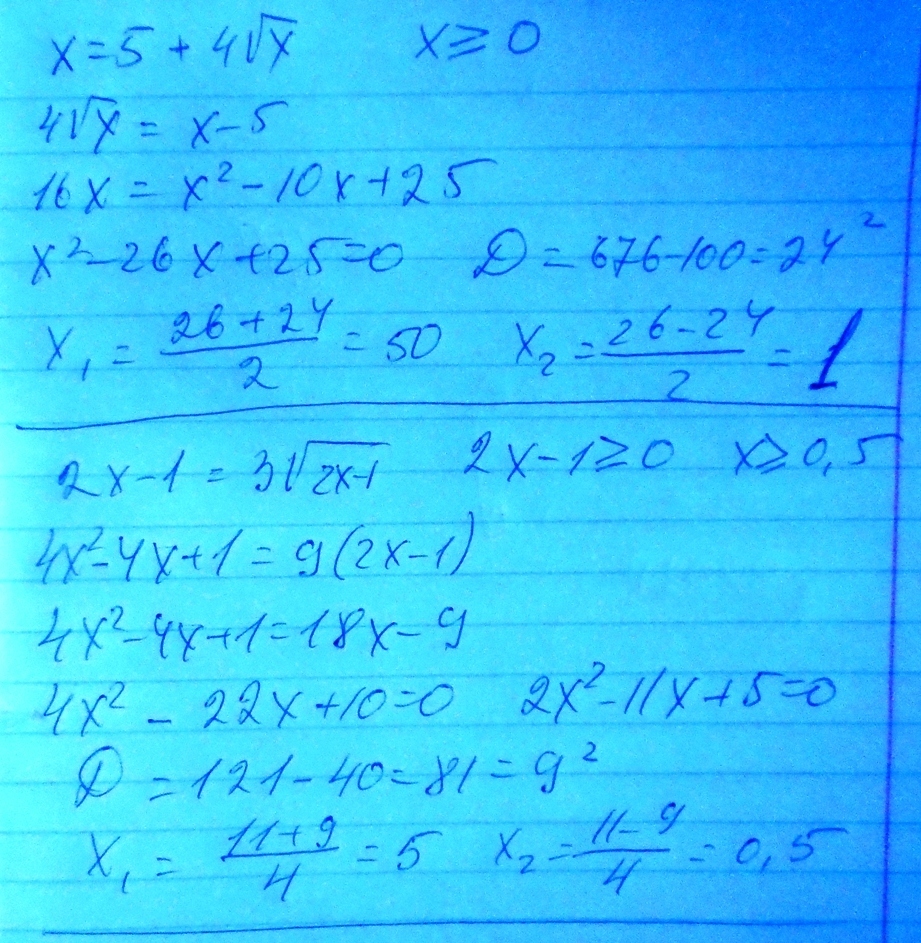 x = 5 + 4√x    x ≥ 0
4√x = x - 5
16x = x² - 10x + 25
x² - 26x + 25 = 0    D = 676 - 100 = 24²
x₁ = (26 + 24)/2 = 50    x₂ = (26 - 24)/2 = 1
2x - 1 = 3√(2x-1)    2x - 1 ≥ 0    x ≥ 0,5
4x² - 4x + 1 = 9(2x - 1)
4x² - 4x + 1 = 18x - 9
4x² - 22x + 10 = 0    2x² - 11x + 5 = 0
D = 121 - 40 = 81 = 9²
x₁ = (11 + 9)/4 = 5    x₂ = (11 - 9)/4 = 0,5